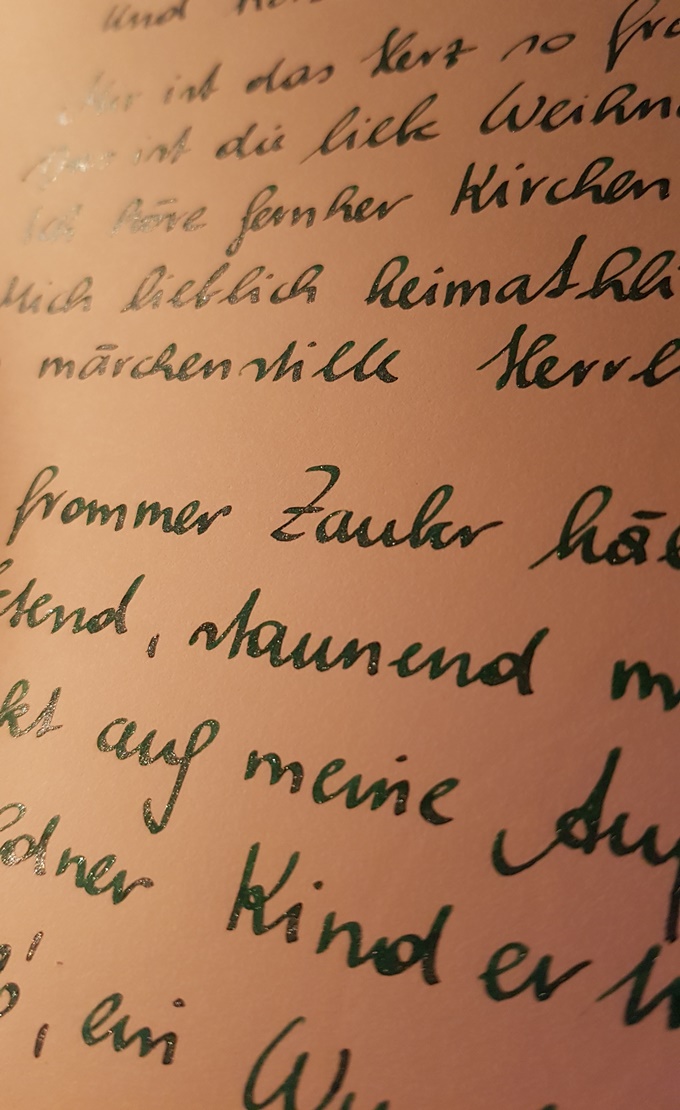 Und
Mir ist das Herz so fro
Das ist die liebe Weihn
Ich höre fernher Kirchen
Mich lieblich heimathli
märchenstille Herrl
frommer Zauber häl
tend, staunend m
kt auf meine Aug
ldner Kindert
, ein Wu